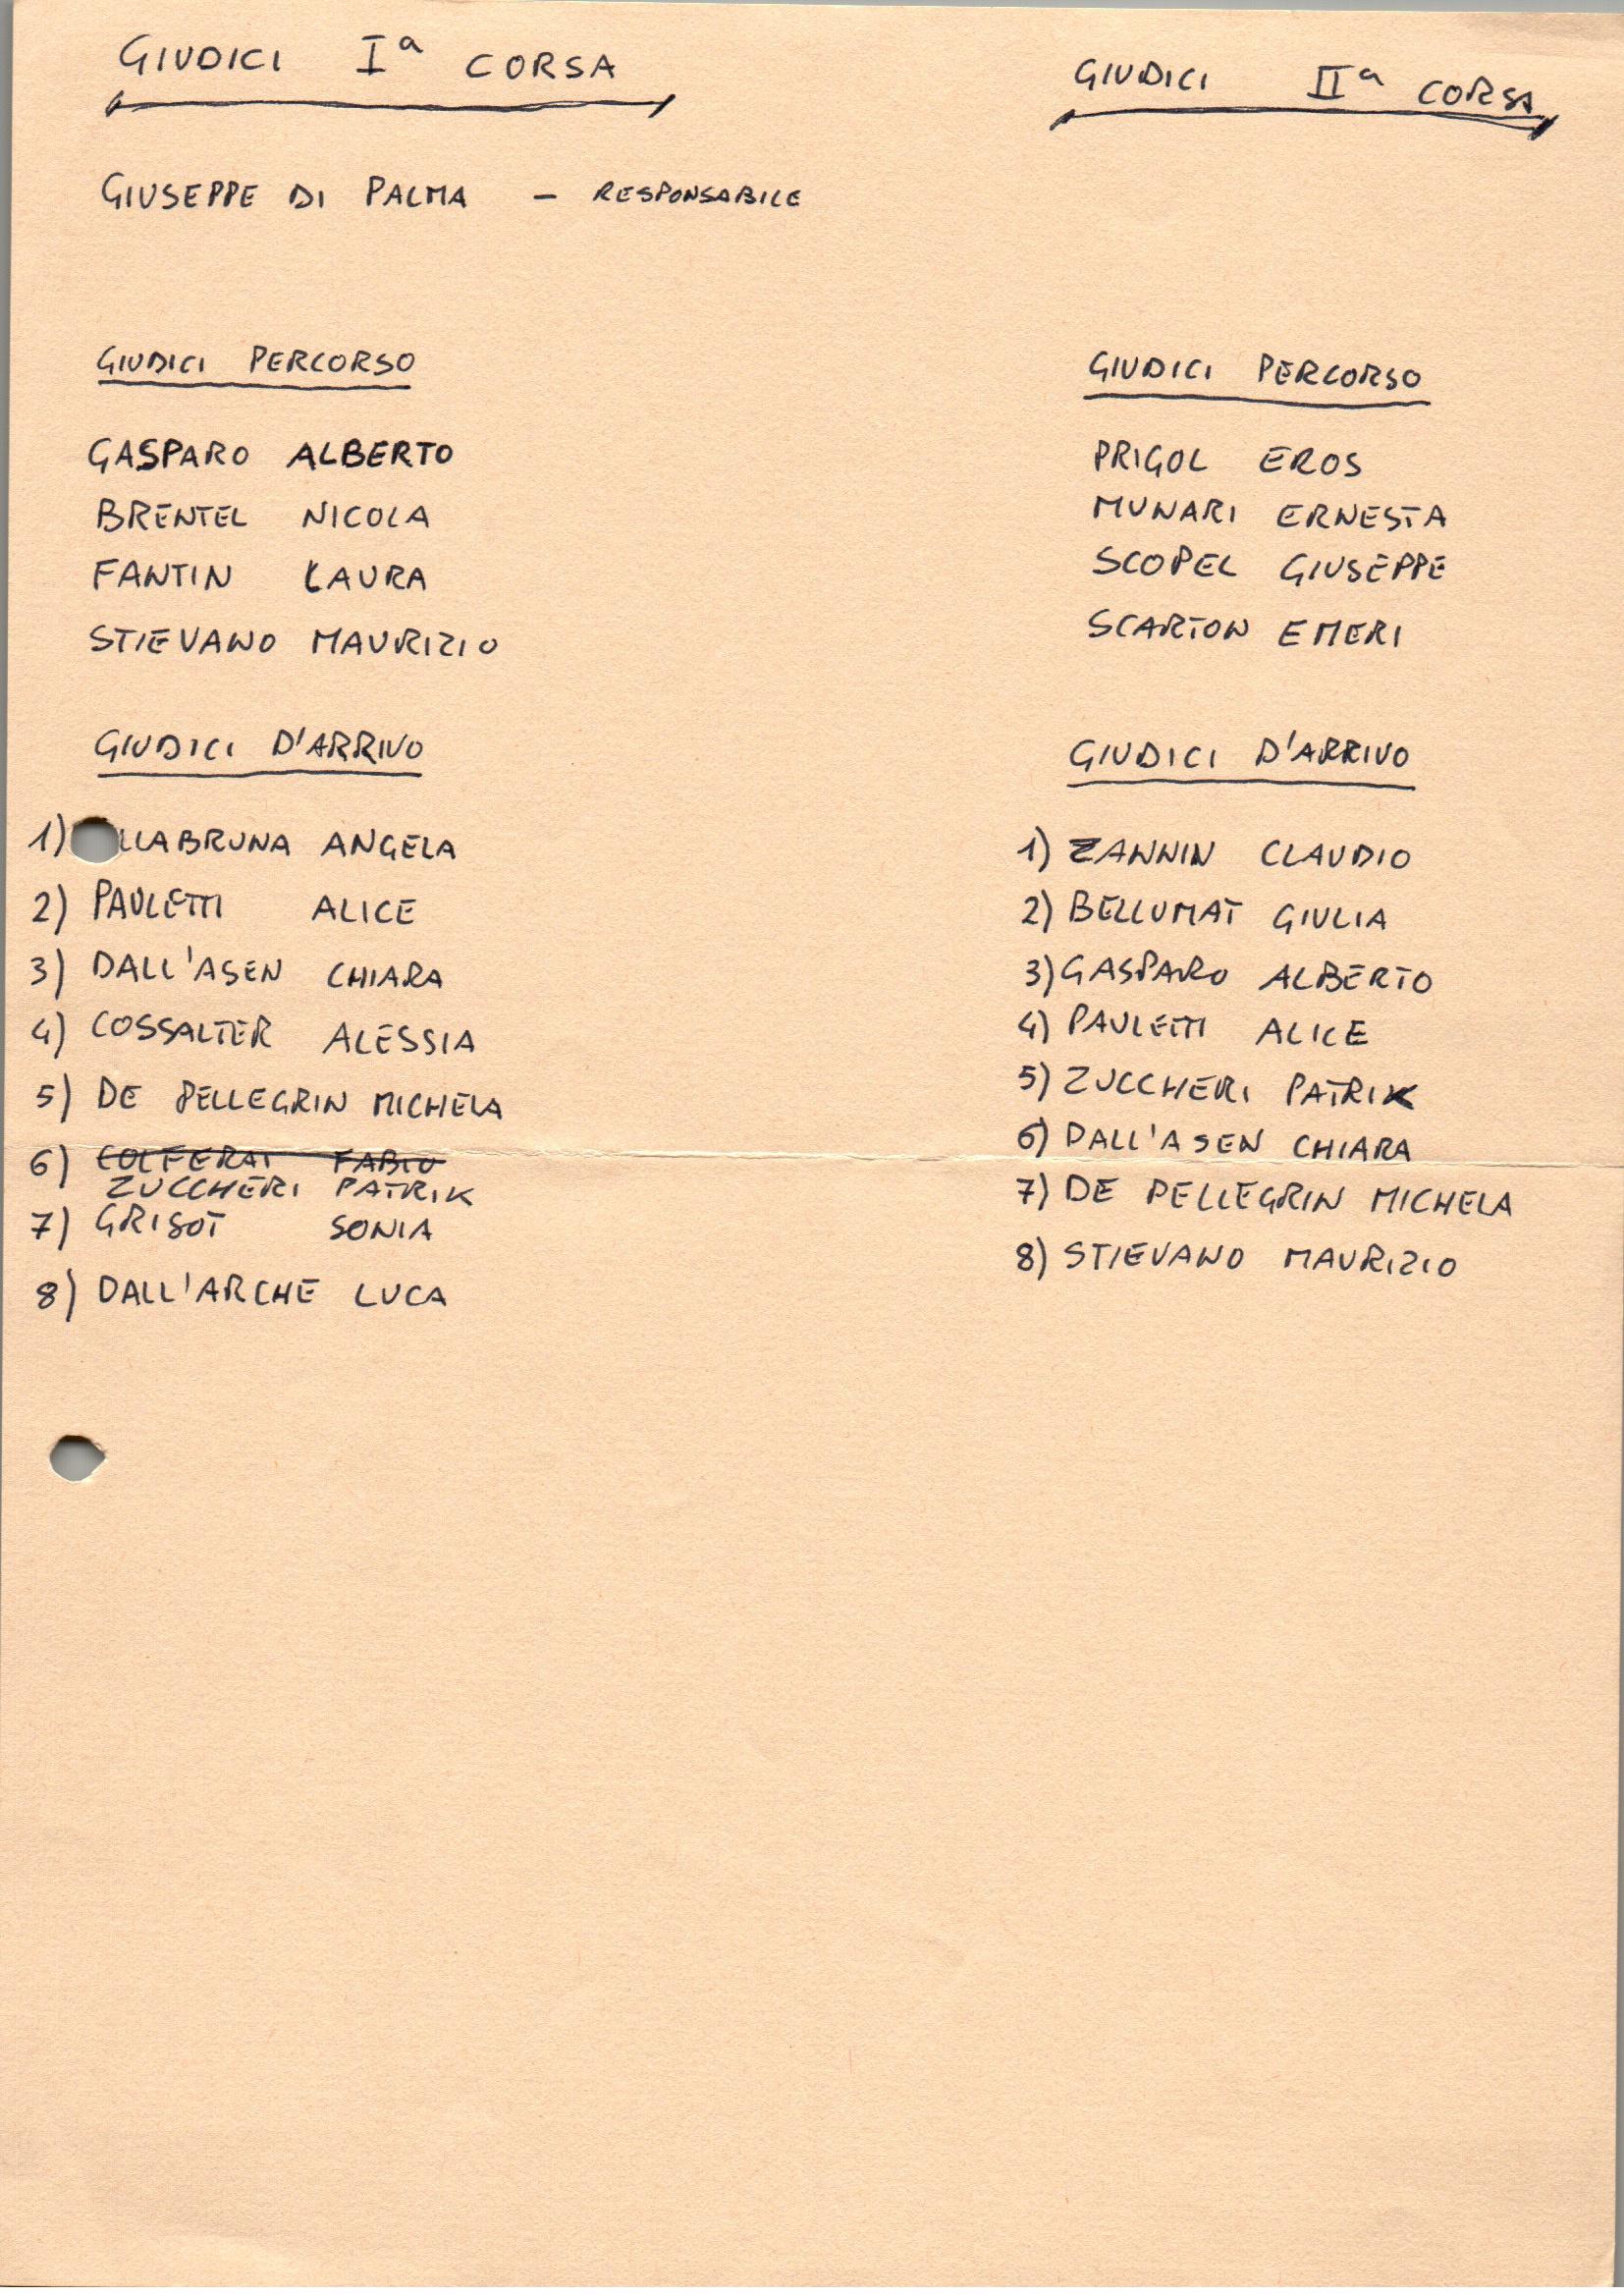 GIUDICI Iª CORSA
GIUSEPPE DI PALMA – RESPONSABILE
GIUDICI PERCORSO
GASPARO ALBERTO
BRENTEL NICOLA
FANTIN LAURA
STIEVANO MAURIZIO
GIUDICI D'ARRIVO
1) LLABRUNA ANGELA
2) PAULETTI ALICE
3) DALL'ASEN CHIARA
4) COSSALTER ALESSIA
5) DE PELLEGRIN MICHELA
6) COLFERAI FABIO
ZUCCHERI PATRIK
7) GRISOT SONIA
8) DALL'ARCHE LUCA
GIUDICI IIª CORSA
GIUDICI PERCORSO
PRIGOL EROS
MUNARI ERNESTA
SCOPEL GIUSEPPE
SCARTON EMERI
GIUDICI D'ARRIVO
1) ZANNIN CLAUDIO
2) BELLUMAT GIULIA
3) GASPARO ALBERTO
4) PAULETTI ALICE
5) ZUCCHERI PATRIK
6) DALL'ASEN CHIARA
7) DE PELLEGRIN MICHELA
8) STIEVANO MAURIZIO